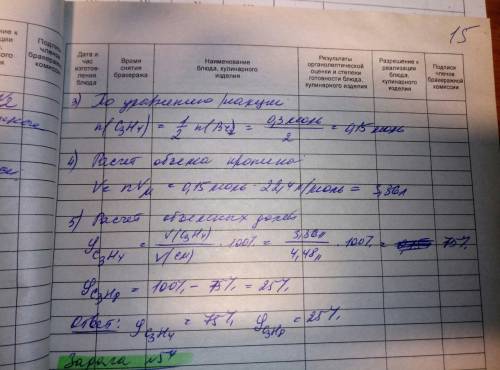 15
Подписи членов бракеражной комиссии
Дата и час изготовления блюда
Время снятия бракеража
Наименование блюда, кулинарного изделия
Результаты органолептической оценки и степени готовности блюда, кулинарного изделия
Разрешение к реализации блюда, кулинарного изделия
Подписи членов бракеражной комиссии
3) По уравнению реакции
n(C3H4) = 1/2 n(Br2) = 0,3 моль/2 = 0,15 моль
4) Расчет объема пропина
V = nVм = 0,15 моль · 22,4 л/моль = 3,36 л
5) Расчет объемных долей
φC3H4 = V(C3H4)/V(см) · 100% = 3,36 л/4,48 л · 100% = 75%
φC3H8 = 100% - 75% = 25%
Ответ: φC3H4 = 75% φC3H8 = 25%
Задача №5